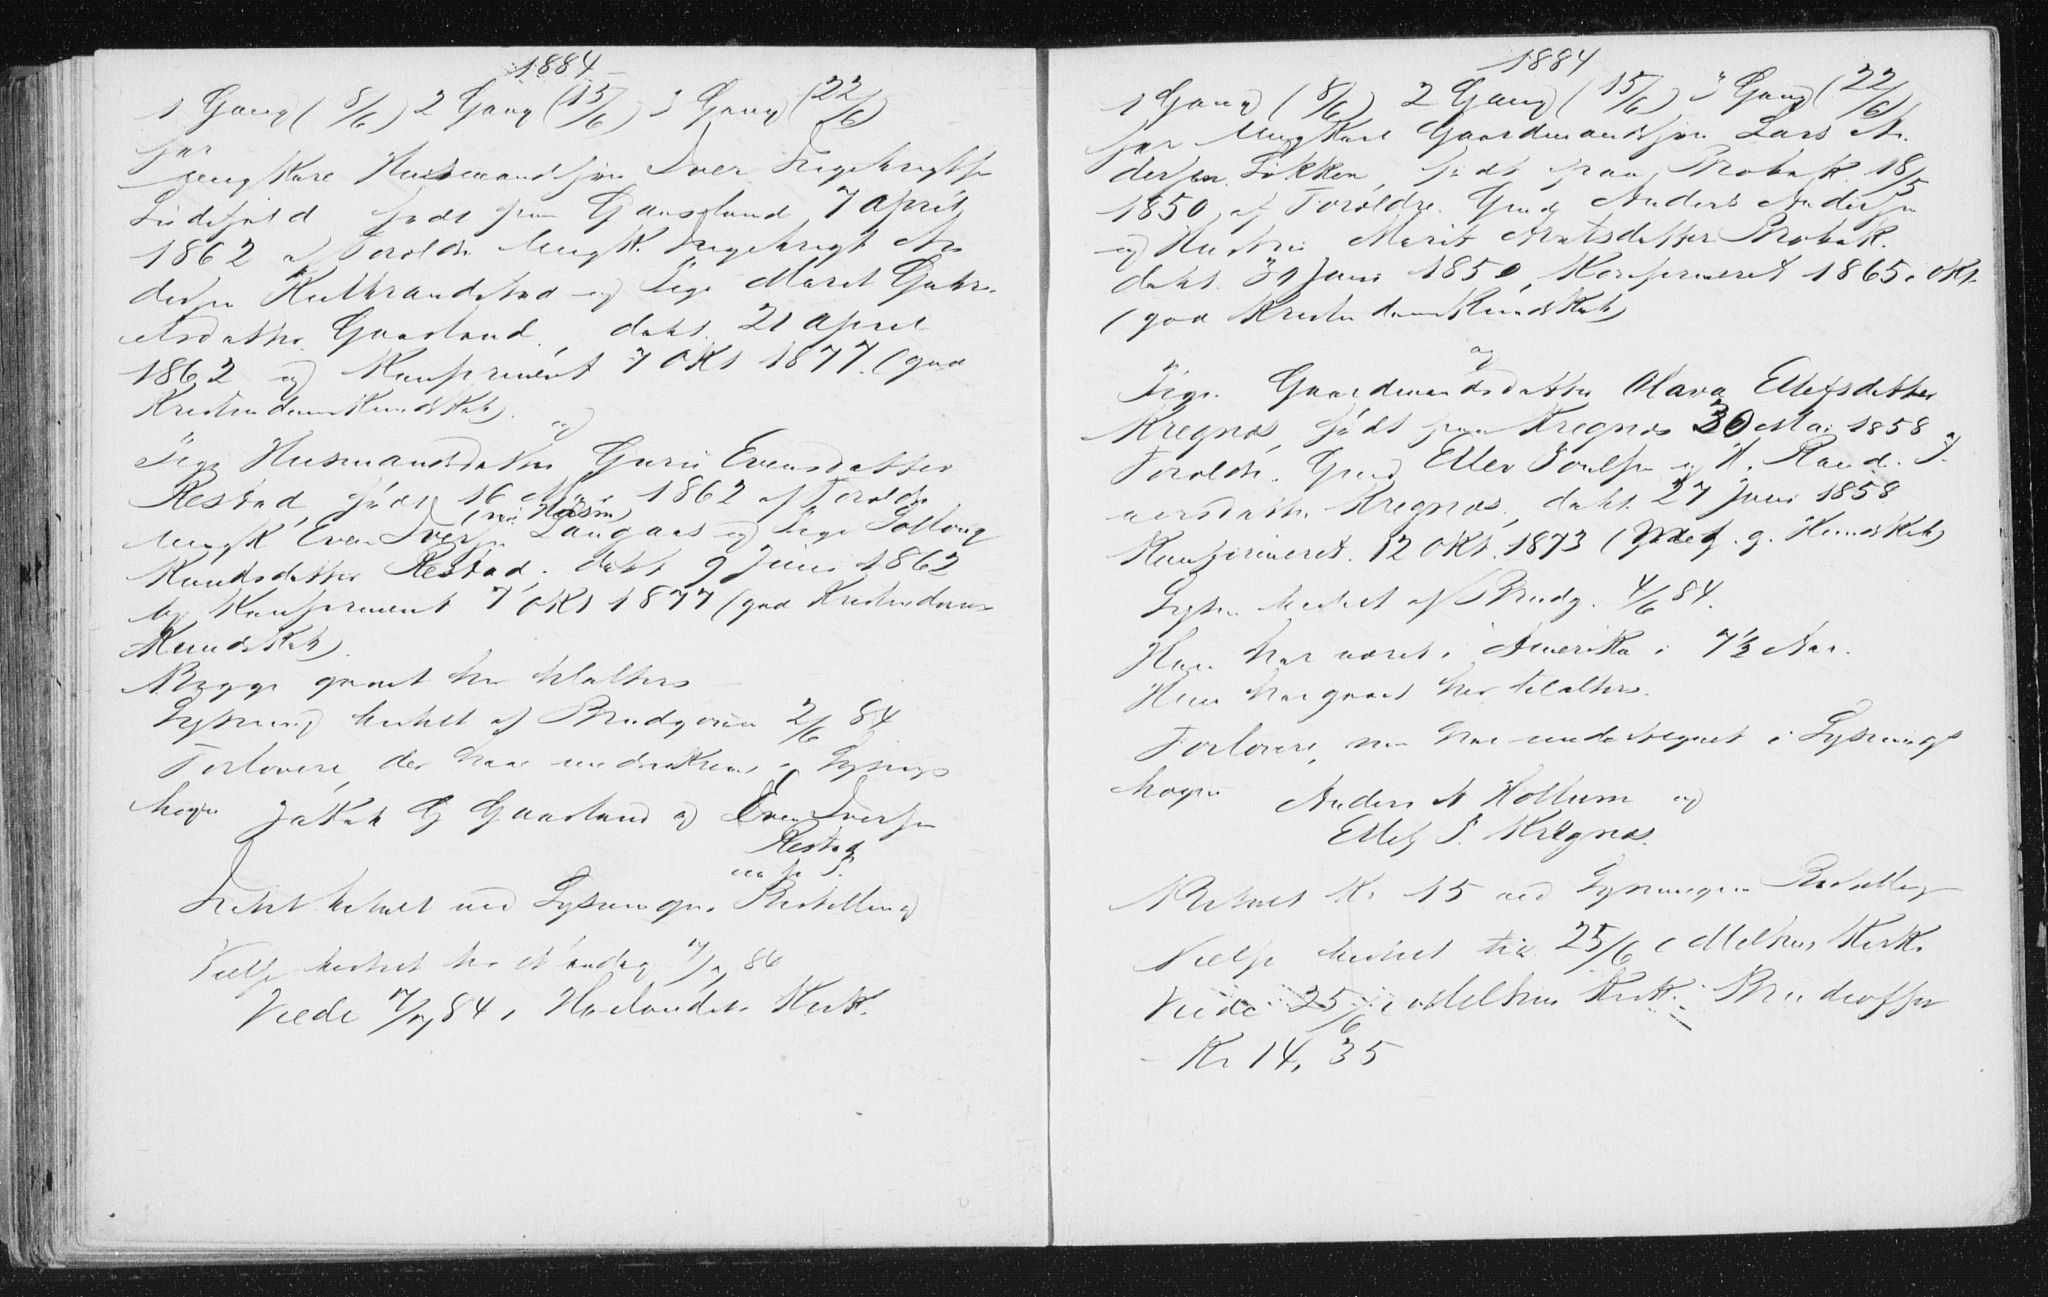 1884
1 Gang (8/6) 2 Gang (15/6) 3 Gang (22/6)
for
Ungkarl Husmandssøn Iver Ingebrigtsen
født paa Gaasland 7 April
1862 af Foræld. Ungk. Ingebrigt An
dersen og Pige Marit
datter Gaasland, døbt 21 April
1862 og Konfirmeret 7 Okt 1877 (god
Kristendomskundskab)
og
Pige Husmandsdatter Guru Evensdatter
Restad, født 16 1862 af Foræld.
(nu Husm)
Ungk Even Iversen Langaas og Pige Solloug
Knudsdatter Restad. døbt 9 Juni 1862
og Konfirmeret 7 Okt 1877 (god Kristendoms
Kundskab)
Begge gaaet her tilalters
Lysning bestilt af Brudgommen 2/6 84
Forlovere, der have i Lysnings
bogen Jakob G Gaasland og Even Iversen
Restad
m. p. P.
betalt ved Lysningens Bestilling
Vielse bestilt til Mandag 7/7 84
Viede 7/7 84 i Hølandets Kirk.
1884
1 Gang (8/6) 2 Gang (15/6) 3 Gang (22/6)
for Ungkarl Gaardmandssøn Lars An
dersen Løkken, født paa Brobak 18/5
1850 af Forældre Gmd Anders Andersen
og Hustru Marit Arntsdatter Brobak.
døbt Juni 1850, Konfirmeret 1865 i Okt.
(god Kristendomskundskab)
og
Pige Gaardmandsdatter Olava Ellefsdatter
Kregnæs, født paa Kregnæs 30 Mai 1858 af
Foræld. Gmd Ellef Poulsen og H. Rand. I
versdatter Kregnæs, døbt 27 Juni 1858
Konfirmeret 12 Okt. 1873 (meg. g. Kundskab)
Lysn. bestilt af Brudg. 4/6 84.
Han har været i Amerika i 7½ Aar.
Hun har gaaet her tilalters.
Forlovere, som have undertegnet i Lysnings
bogen Anders A Hollum og
Ellef P. Kregnæs.
Betalt Kr 15 ved Lysningens Bestilling
Vielse bestilt til 25/6 i Melhus Kirk.
Viede 25/6 i Melhus Kirk. Brudeoffer
Kr 14,35